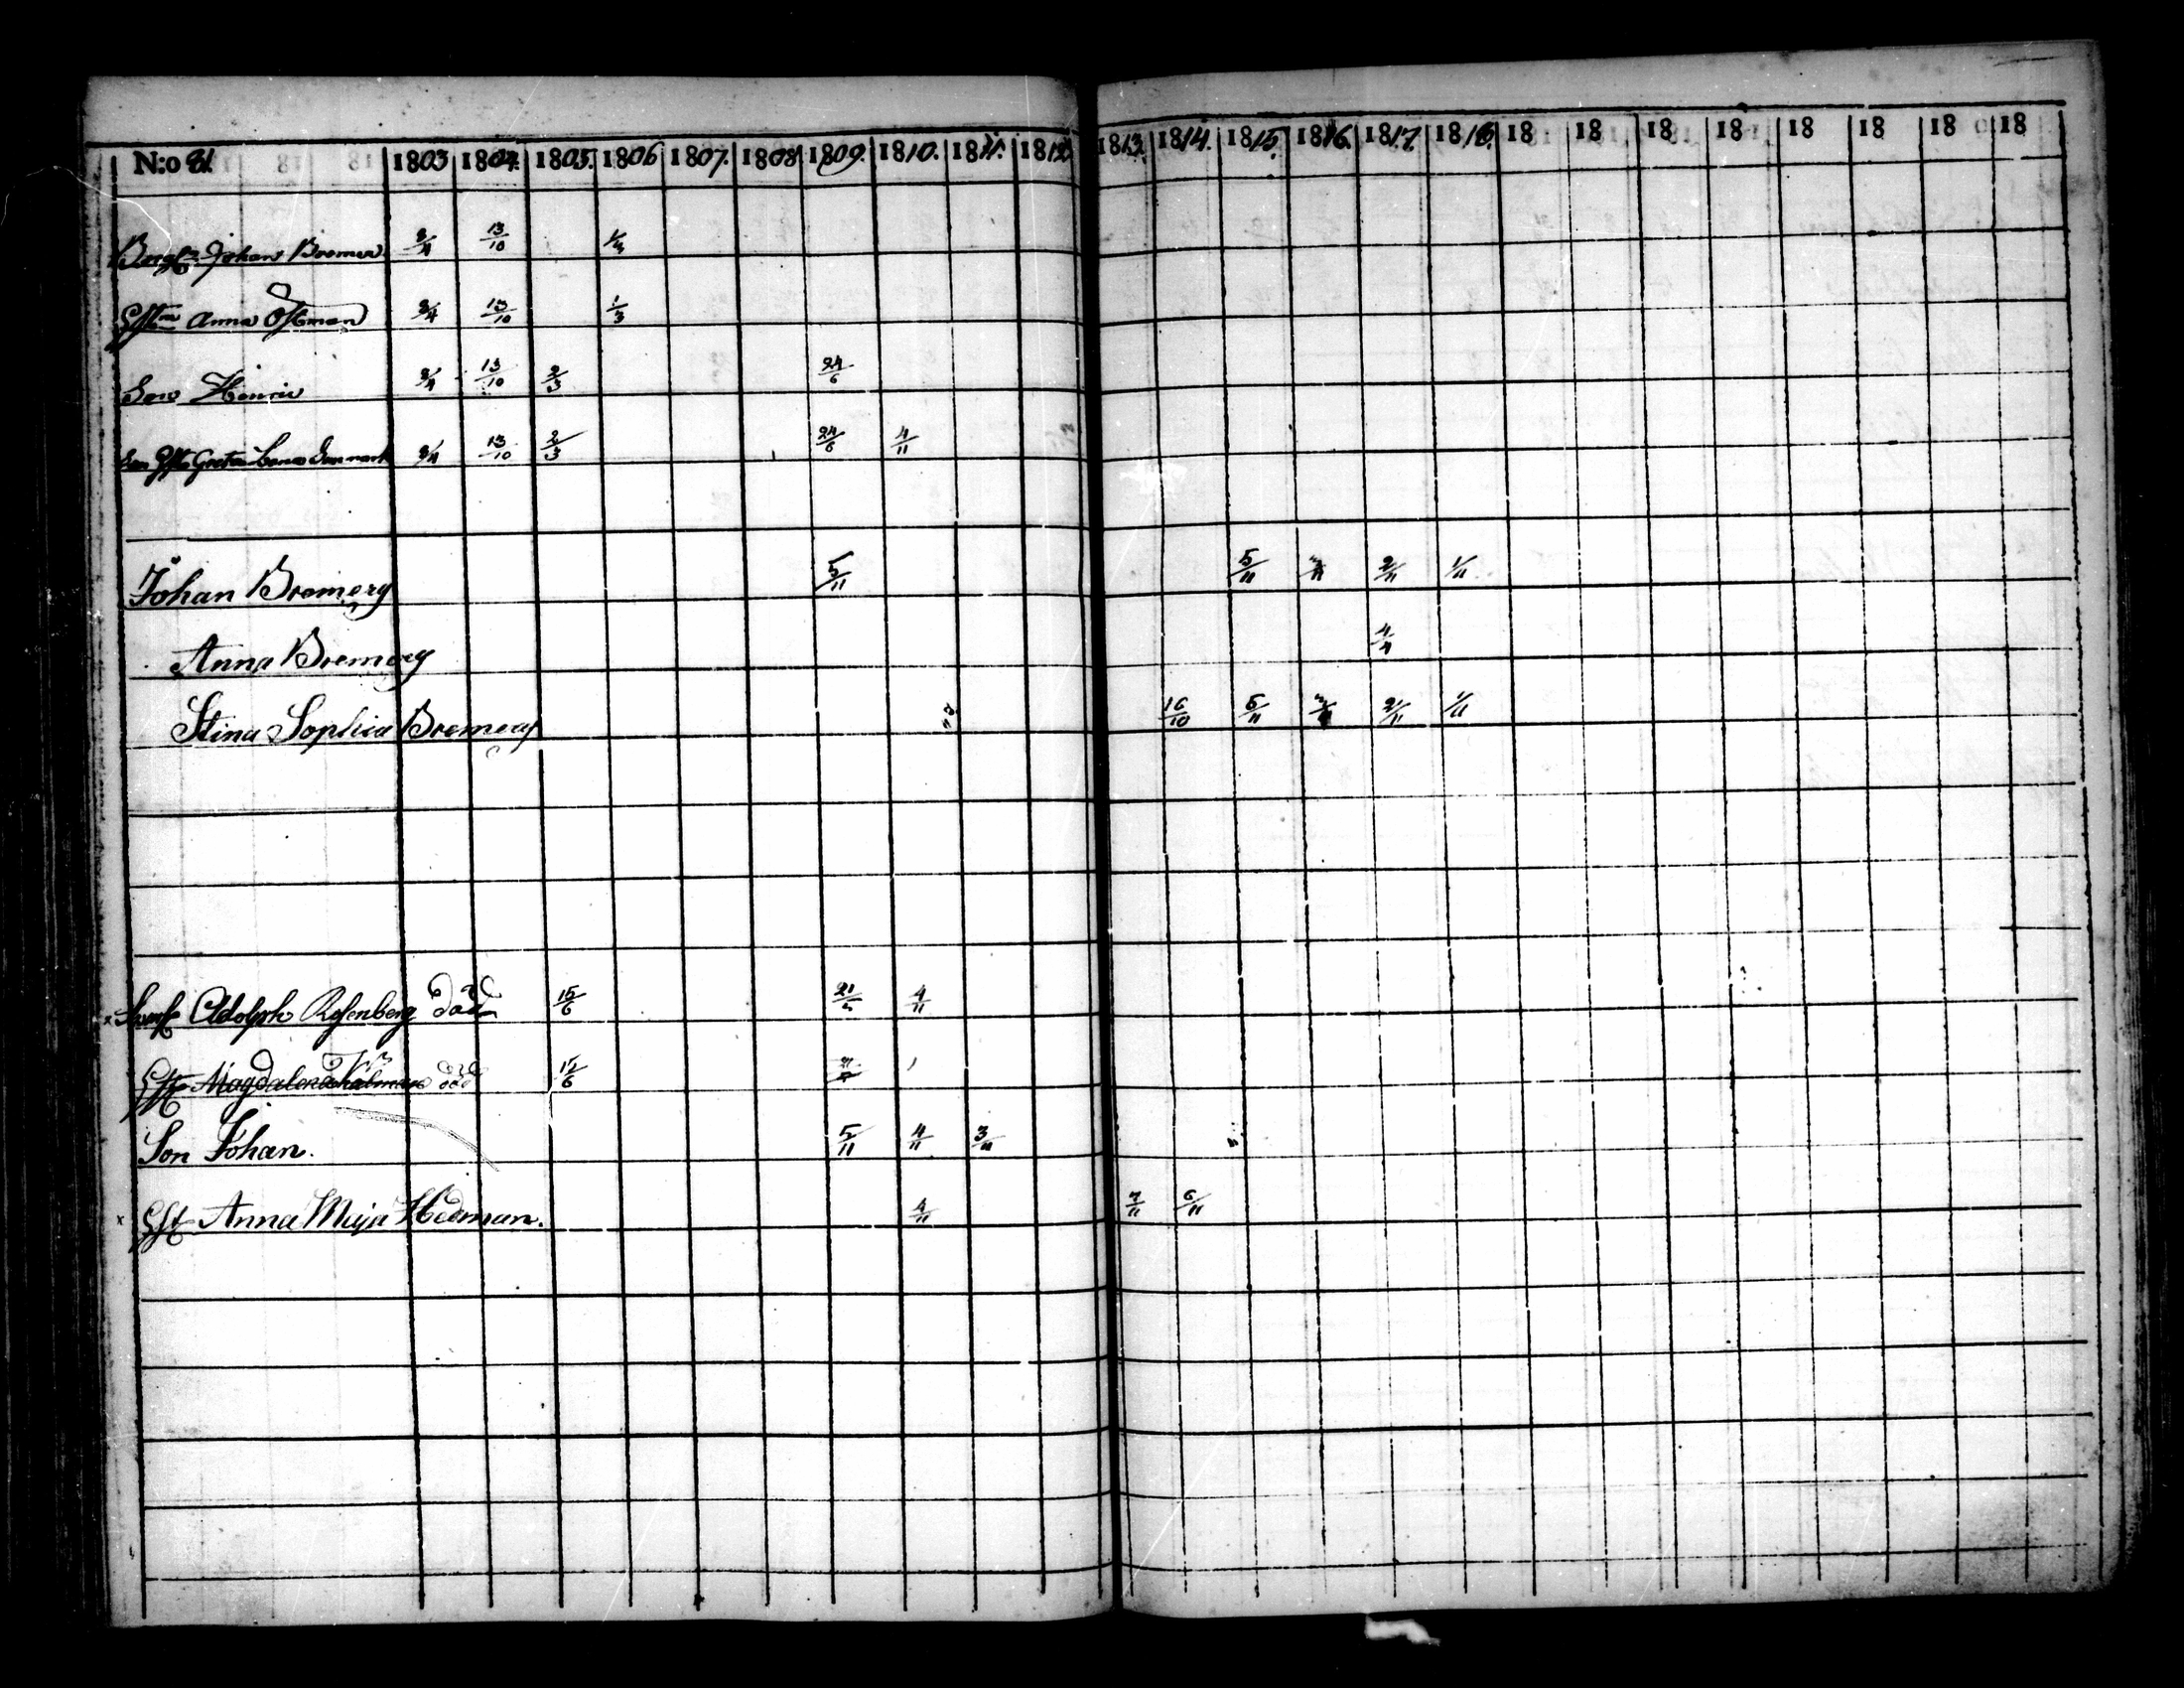 N:o 81. 1803 1804. 1805. 1806 1807. 1808 1809. 1810. 1811. 1812 1813. 1814. 1815. 1816. 1817. 1818. 18 18 18 18 18 18 18 18
Johan Bremer 3/4 13/10 1/3
Anna Östman 3/4 13/10 1/3
Son Henric 3/4 13/10 2/3 24/6
Greta Lena 3/4 13/10 2/3 24/6 4/11
Johan Bremerg 5/11 5/11 2/11 1/11
Anna Bremerg 4/4
Stina Sophia Bremerg 16/10 5/11 2/11 1/11
Adolph Rosenberg död 15/6 21/5 4/11
Gft Magdalena död 15/6
Son Johan. 5/11 4/11 3/11
Gft Anna Maja Hedman. 4/11 7/11 6/11